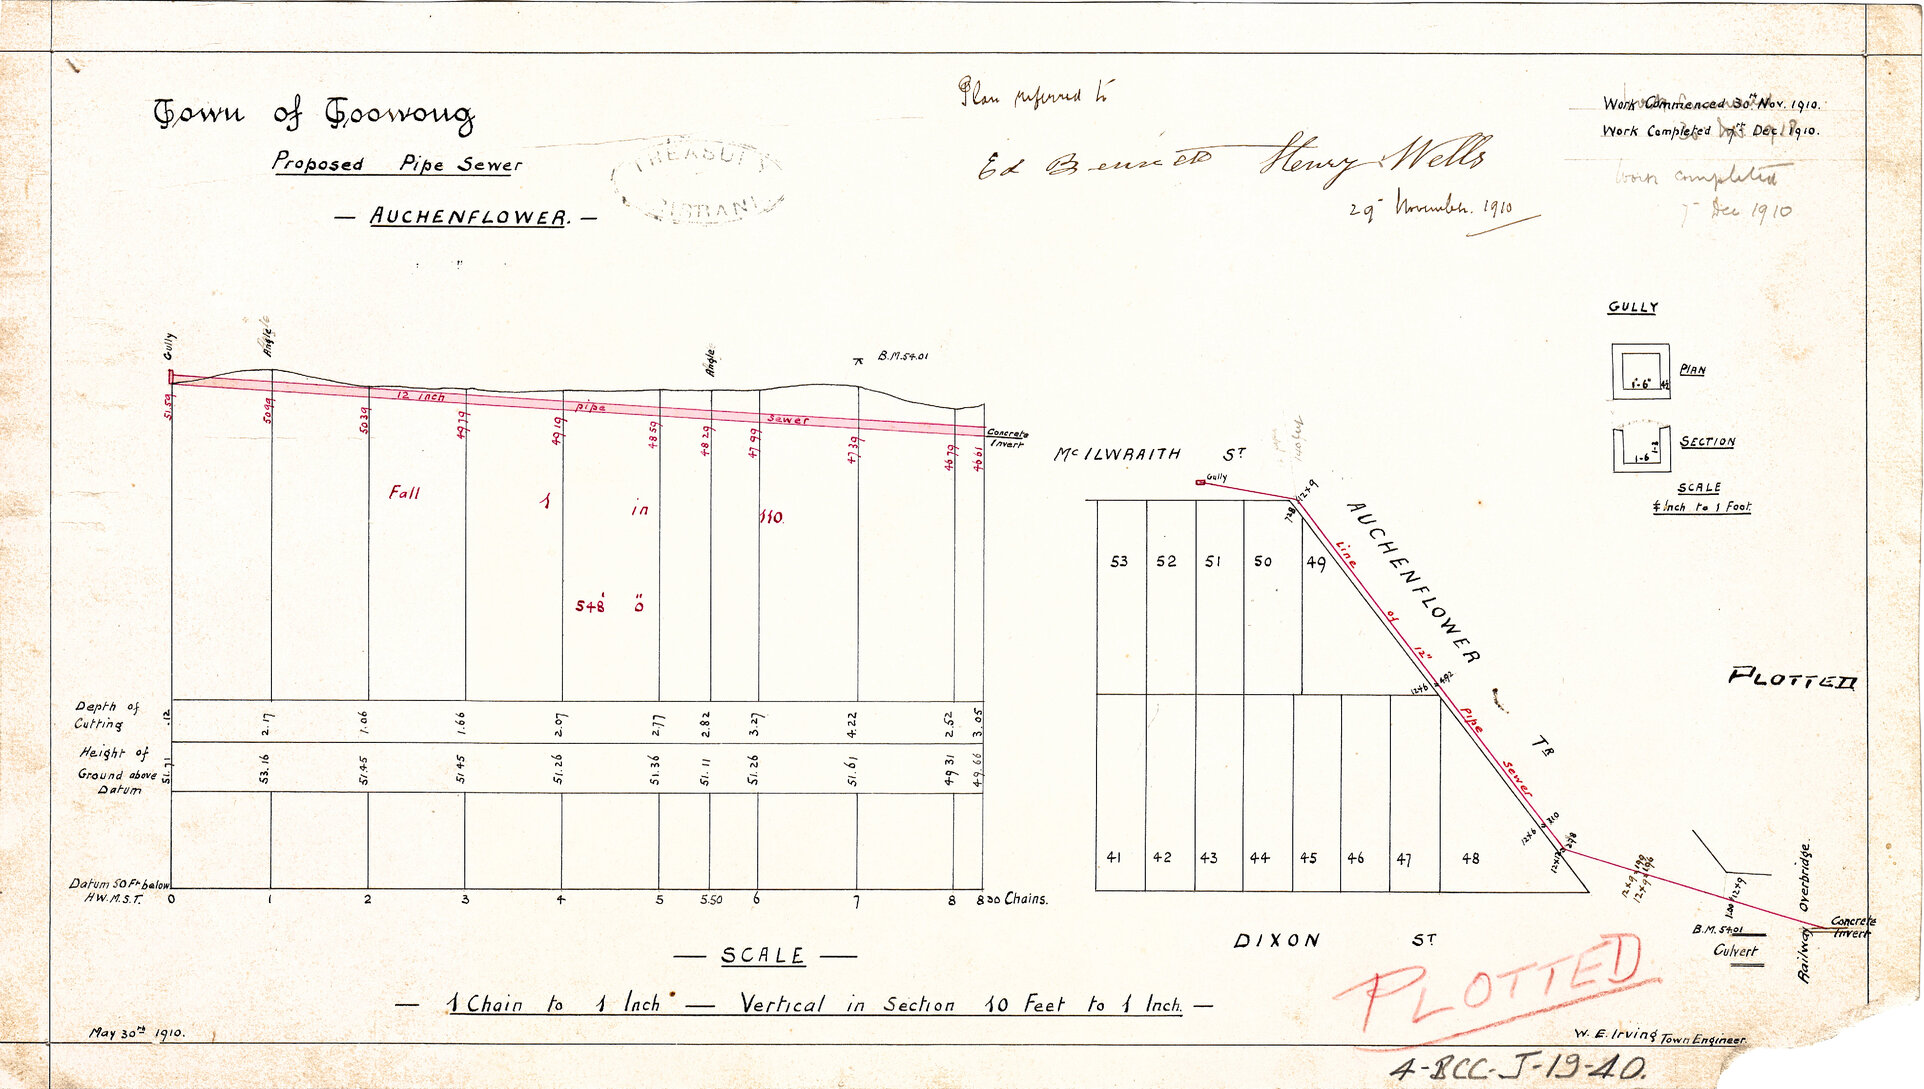 Town of Toowong
Proposed Pipe Sewer
— AUCHENFLOWER. —
TREASURY
Plan referred to
Ed Bennett Henry Wells
29th November. 1910
Work Commenced 30th Nov. 1910.
Work Completed 7th Dec. 1910.
Work completed
7th Dec 1910
GULLY
PLAN
1'-6"
4½
SECTION
1-6
SCALE
¾ Inch to 1 Foot.
Gully
Angle
Angle
B.M.54.01
12 inch pipe sewer
Concrete
Invert
51.59 50.99 50.39 49.79 49.19 48.59 48.29 47.99 47.39 46.79 46.61
Fall 1 in 110.
548' 0"
Depth of Cutting
.12 2.17 1.06 1.66 2.07 2.77 2.82 3.27 4.22 2.52 3.05
Height of Ground above Datum
51.71 53.16 51.45 51.45 51.26 51.36 51.11 51.26 51.61 49.31 49.66
Datum 50 Ft below
H.W.M.S.T.
0 1 2 3 4 5 5.50 6 7 8 8.30 Chains.
McILWRAITH ST
Gully
12x9
728
53 52 51 50 49
AUCHENFLOWER TR
Line of 12" Pipe Sewer
12x6
492
12x6
210
278
12x12
41 42 43 44 45 46 47 48
12x9
12x9
12x9
100
B.M.5401
Culvert
Railway Overbridge.
Concrete
Invert
DIXON ST
PLOTTED
PLOTTED
— SCALE —
— 1 Chain to 1 Inch — Vertical in Section 10 Feet to 1 Inch. —
May 30th 1910.
W. E. Irving Town Engineer.
4-BCC-J-19-40.